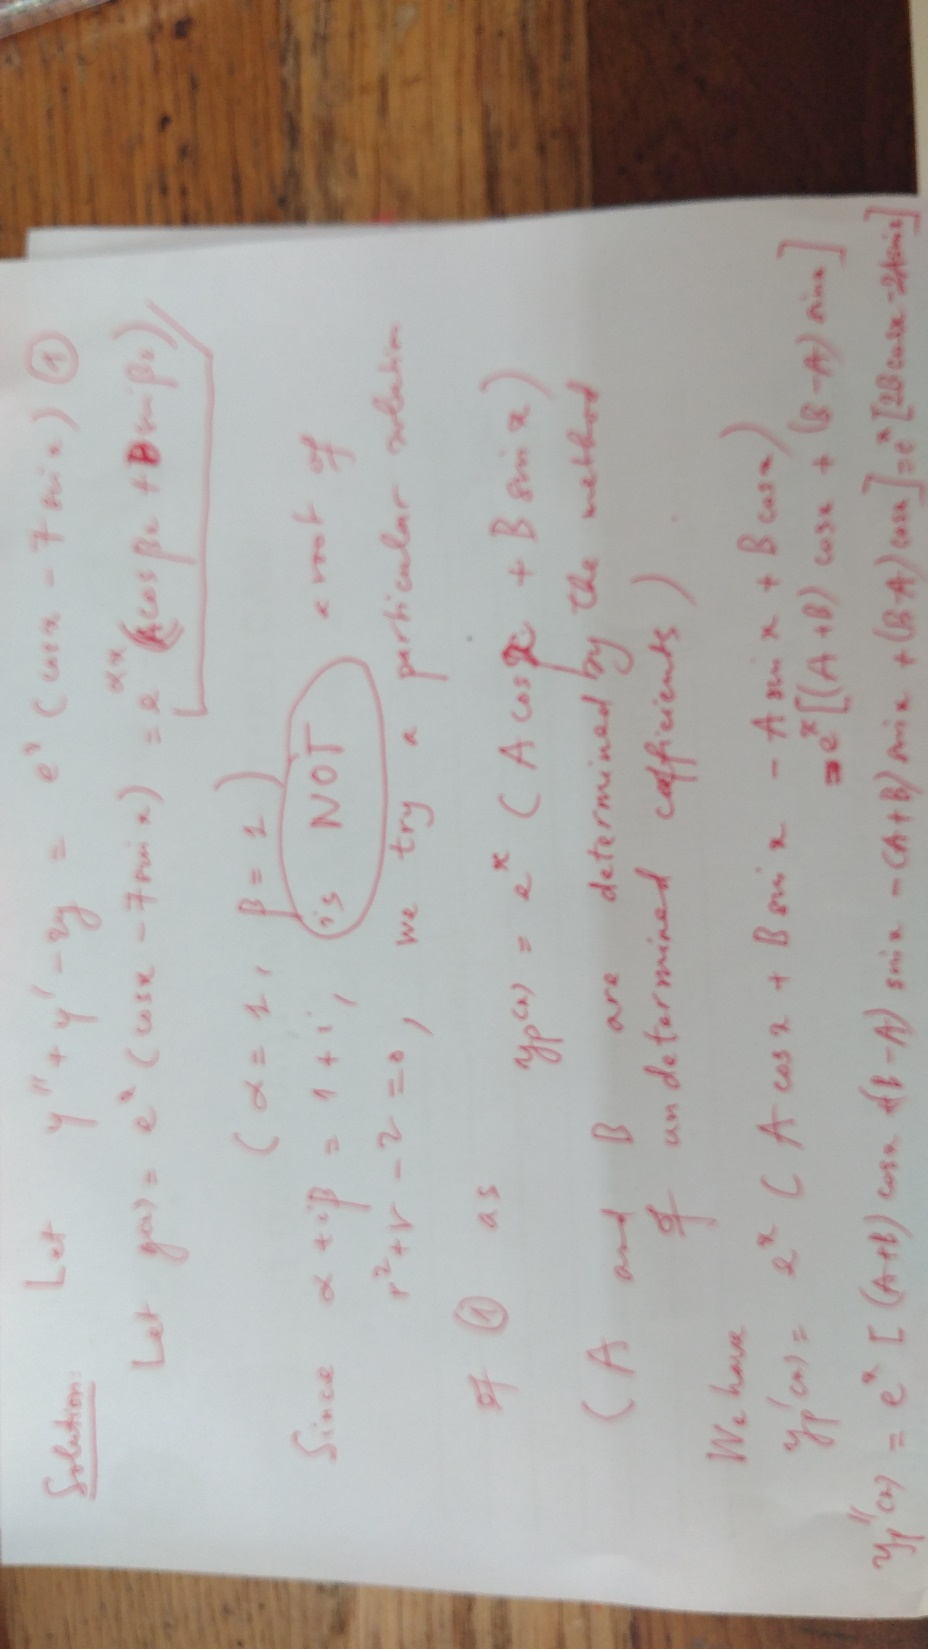 Solution: Let y'' + y' - 2y = e^x (cosx - 7 sinx) ①
Let g(x) = e^x (cosx - 7 sinx) = e^αx (A cos βx + B sin βx)
( α = 1, β = 1 )
Since α + iβ = 1 + i, is NOT a root of
r² + r - 2 = 0, we try a particular solution
of ① as yp(x) = e^x ( A cos x + B sin x )
( A and B are determined by the method
of undetermined coefficients )
We have
yp'(x) = e^x ( A cos x + B sin x - A sin x + B cosx )
= e^x [(A+B) cosx + (B-A) sinx]
yp''(x) = e^x [ (A+B) cosx + (B-A) sinx - (A+B) sinx + (B-A) cosx ] = e^x [2B cosx - 2A sinx]